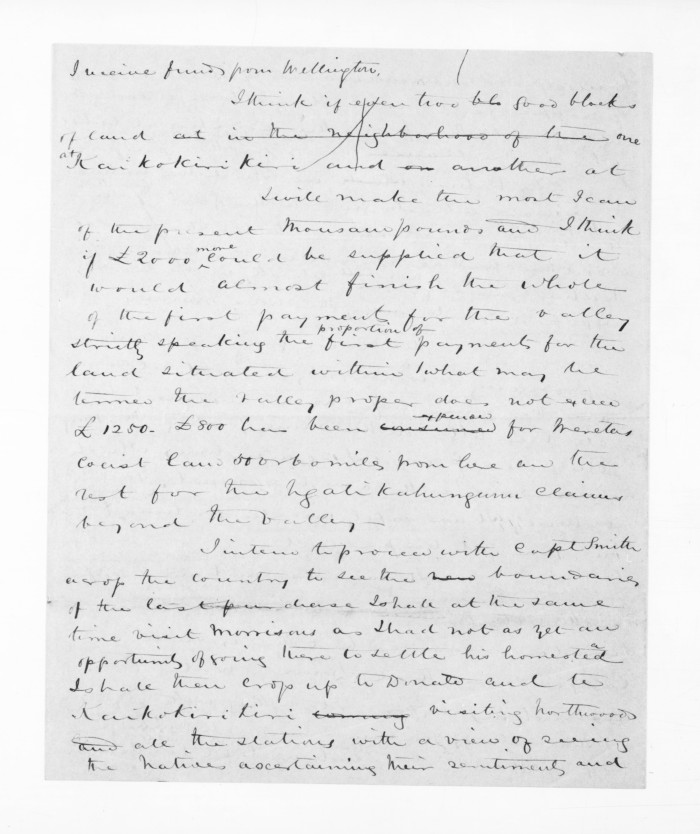 I receive funds from Wellington.
I think if even two blo good blocks
of land at in the neighborhood of the one
at Kaikokirikiri and on another at
I will make the most I can
of the present thousand pounds and I think
if £2000 more could be supplied that it
would almost finish the whole
of the first payment for the valley
strictly speaking the proportion of first payments for the
land situated within what may be
termed the valley proper does not exceed
£1250- £800 has been consumed expended for
coast land 50 or 60 miles from here and the
rest for the Ngatikahungunu claims
beyond the valley—
I intend to proceed with Capt Smith
across the country to see the new boundaries
of the last purchase I shall at the same
time visit Morrisons as I had not as yet an
opportunity of going there to settle his homestead
I shall then cross up to Donald and to
Kaikokirikiri coming visiting Northwoods
and all the stations with a view of seeing
the Natives ascertaining their sentiments and